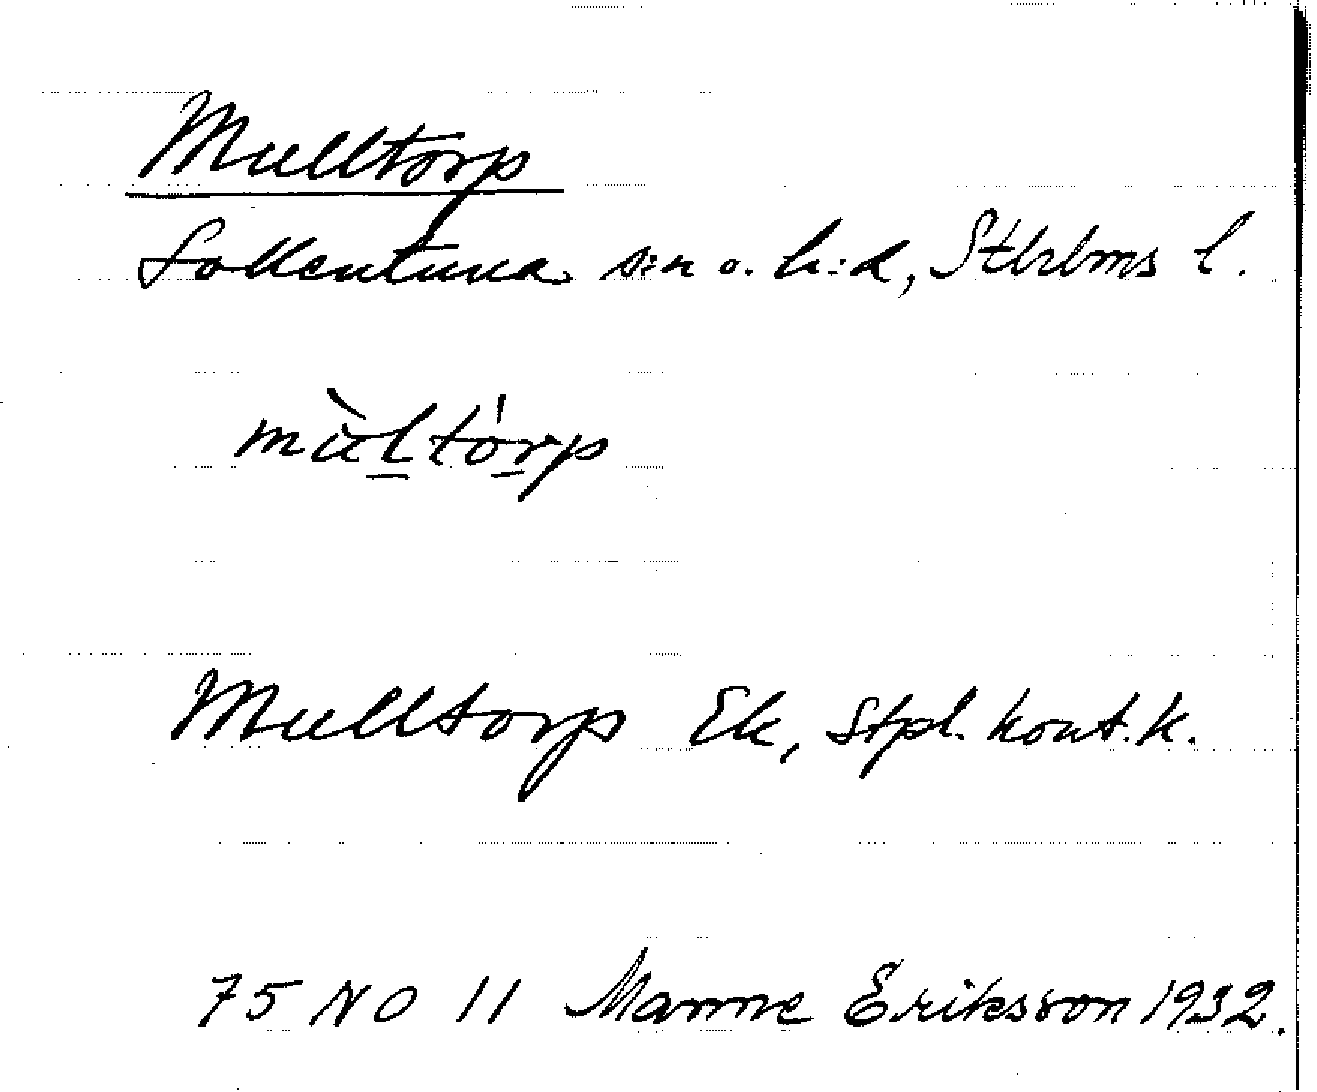 Mulltorp
Sollentuna s:n o. h:d, Sthlms l.
mùltórp
Mulltorp Ek, Stpl. kont. k.
75 NO 11 Manne Eriksson 1932.